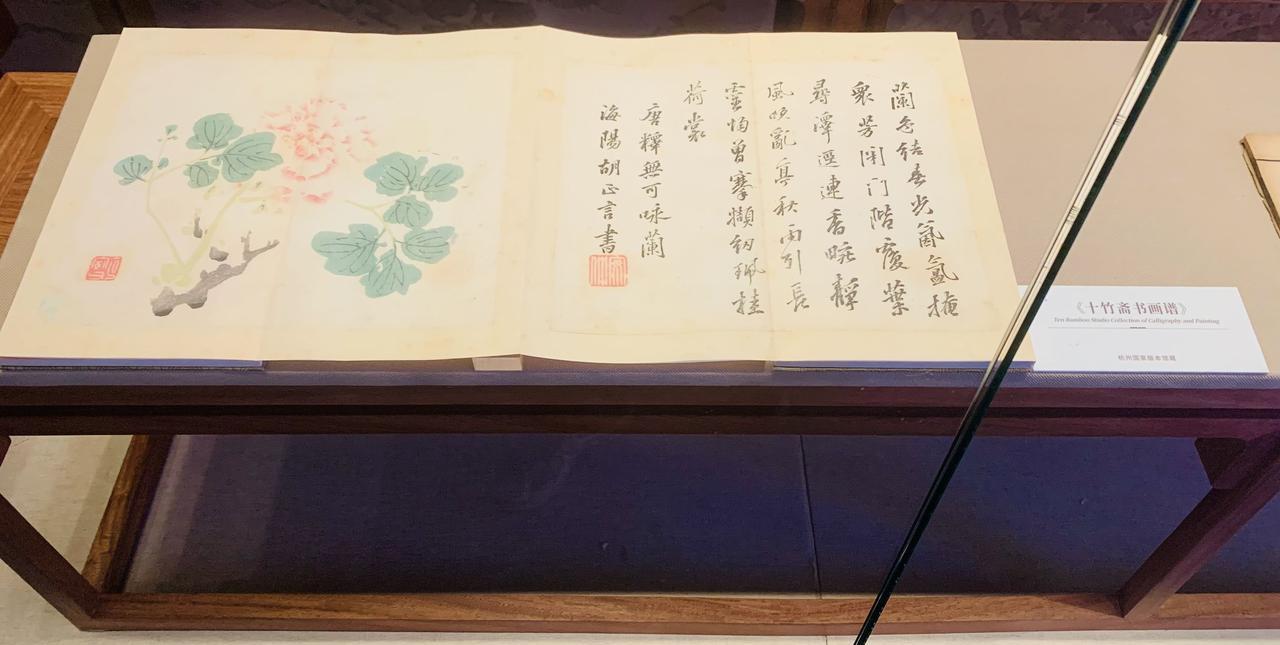 蘭色結春光氛氳掩
衆芳门階覆葉
尋澤逕連香畹靜
風吹亂亭秋雨引長
靈均曾搴擷紉珮挂
荷裳
唐釋無可咏蘭
海陽胡正言書
《十竹斋书画谱》
Ten Bamboo Studio Collection of Calligraphy and Painting
杭州国家版本馆藏